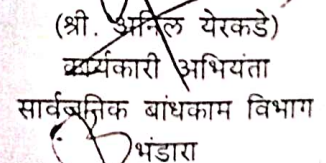 (श्री. अनिल येरकडे)
कार्यकारी अभियंता
सार्वजनिक बांधकाम विभाग
भंडारा